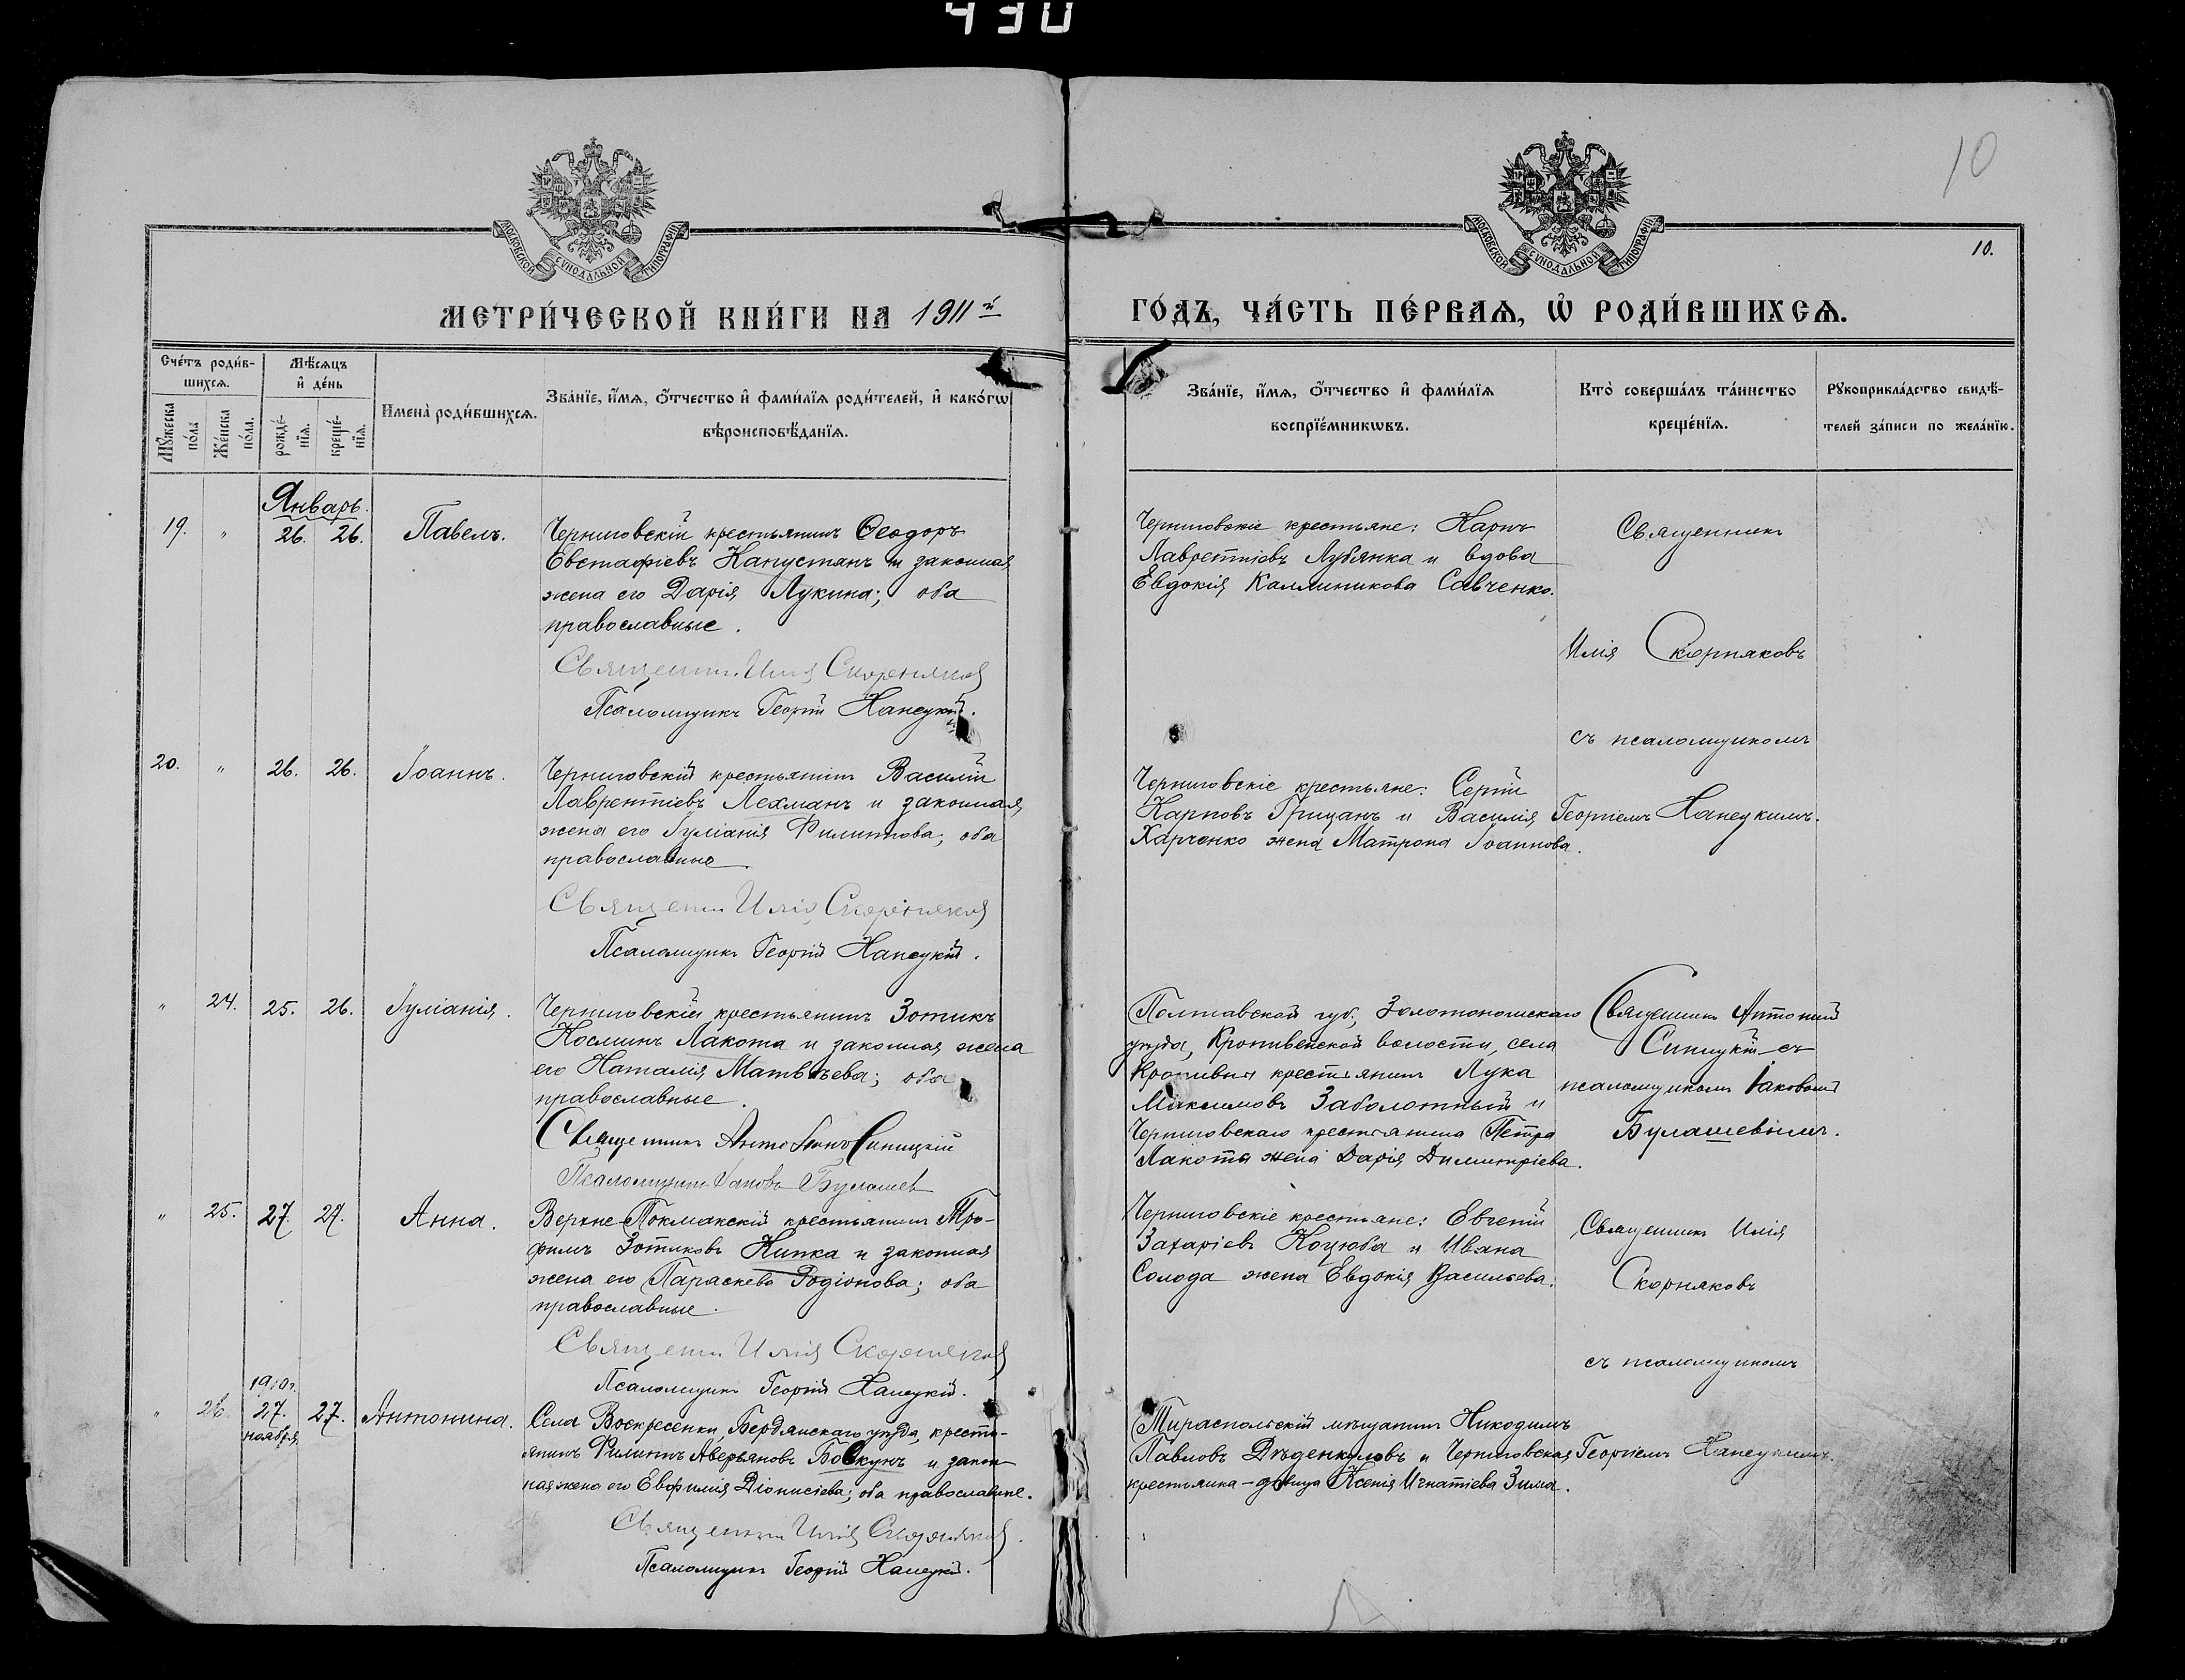 430
10
10.
МОСКОВСКОЙ СѴНОДАЛЬНОЙ ТИПОГРАФІИ.
МОСКОВСКОЙ СѴНОДАЛЬНОЙ ТИПОГРАФІИ.
МЕТРИ́ЧЕСКОЙ КНИ́ГИ НА 1911й
ГО́ДЪ, ЧА́СТЬ ПЕ́РВАѦ, Ѽ РОДИ́ВШИХСѦ.
Сче́тъ роди́в-
шихсѧ.
Мꙋ́жеска
по́ла
Же́нска
по́ла.
Мѣ́сѧцъ
и҆ де́нь
рожде́-
нїѧ.
креще́-
нїѧ.
Имена̀ роди́вшихсѧ.
Зва́нїе, и҆́мѧ, ѻ҆́тчество и҆ фами́лїѧ роди́телей, и҆ како́гѡ
вѣроисповѣ́данїѧ.
Зва́нїе, и҆́мѧ, ѻ҆́тчество и҆ фами́лїѧ
воспрїе́мникѡвъ.
Кто̀ соверша́лъ та́инство
креще́нїѧ.
Рꙋкоприкла́дство свидѣ́-
телей за́писи по жела́нїю.
Январь.
19. " 26. 26. Павелъ.
Черниговскій крестьянинъ Ѳеодоръ
Евстафіевъ Капустянъ и законная
жена его Дарія Лукина; оба
православные.
Священн. Илія Скорняковъ
Псаломщикъ Георгій Ханецкій.
Черниговскіе крестьяне: Карпъ
Лаврентіевъ Лубянка и вдова
Евдокія Каллиникова Савченко.
Священникъ
Илія Скорняковъ
съ псаломщикомъ
Георгіемъ Ханецкимъ.
20. " 26. 26. Іоаннъ.
Черниговскій крестьянинъ Василій
Лаврентіевъ Лехманъ и законная
жена его Іуліанія Филиппова; оба
православные
Священн Илія Скорняковъ
Псаломщикъ Георгій Ханецкій.
Черниговскіе крестьяне: Сергій
Карповъ Грицанъ и Василія
Харченко жена Матрона Іоаннова.
" 24. 25. 26. Іуліанія.
Черниговскій крестьянинъ Зотикъ
Косминъ Лакота и законная жена
его Наталія Матвѣева; оба
православные.
Священникъ Антоній Синицкій
Псаломщикъ Іаковъ Булашев
Полтавской губ., Золотоношскаго
уѣзда, Кропивенской волости, села
Кропивны крестьянинъ Лука
Максимовъ Заболотный и
Черниговскаго крестьянина Петра
Лакоты жена Дарія Димитріева.
Священникъ Антоній
Синицкій съ
псаломщикомъ Іаковомъ
Булашевымъ.
" 25. 27. 27. Анна.
Верхне-Токмакскій крестьянинъ Тро-
фимъ Зотиковъ Кипка и законная
жена его Параскева Родіонова; оба
православные.
Священн Илія Скорняковъ
Псаломщикъ Георгій Ханецкій.
Черниговскіе крестьяне: Евгеній
Захаріевъ Коцюба и Ивана
Солода жена Евдокія Васильева.
Священникъ Илія
Скорняковъ
съ псаломщикомъ
Георгіемъ Ханецкимъ.
1910г.
" 26. 27. 27. Антонина.
ноября
Села Воскресенки, Бердянскаго уѣзда, кресть-
янинъ Филиппъ Аверьяновъ Бовкунъ и закон
ная жена его Евфимія Діонисіева; оба православные.
Священн Илія Скорняковъ.
Псаломщикъ Георгій Ханецкій.
Тираспольскій мѣщанинъ Никодимъ
Павловъ Дѣденкуловъ и Черниговская
крестьянка - дѣвица Ксенія Игнатіева Зима.